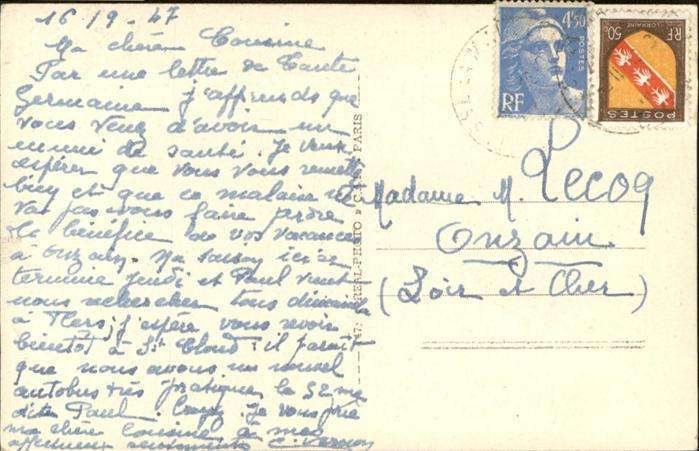 16/9.47
Ma chère Cousine
Par une lettre de Tante
Germaine j'apprends que
vous venez d'avoir un
ennui de santé. Je veux
espérer que vous vous remettez
bien et que ce malaise ne
va pas vous faire perdre
le bénéfice de vos vacances
à Onzain. Ma saison ici se
termine jeudi et Paul vient
nous rechercher tous dimanche
à Flers; j'espère vous revoir
bientôt à St Cloud: il paraît
que nous avons un nouvel
autobus très pratique, le 52 me
dit Paul. Croyez, je vous prie
ma chère Cousine à mes
affectueux sentiments
4F50
POSTES
RF
50c
LORRAINE
RF
POSTES
REAL-PHOTO
PARIS
Madame M. Lecoq
Onzain
(Loir et Cher)